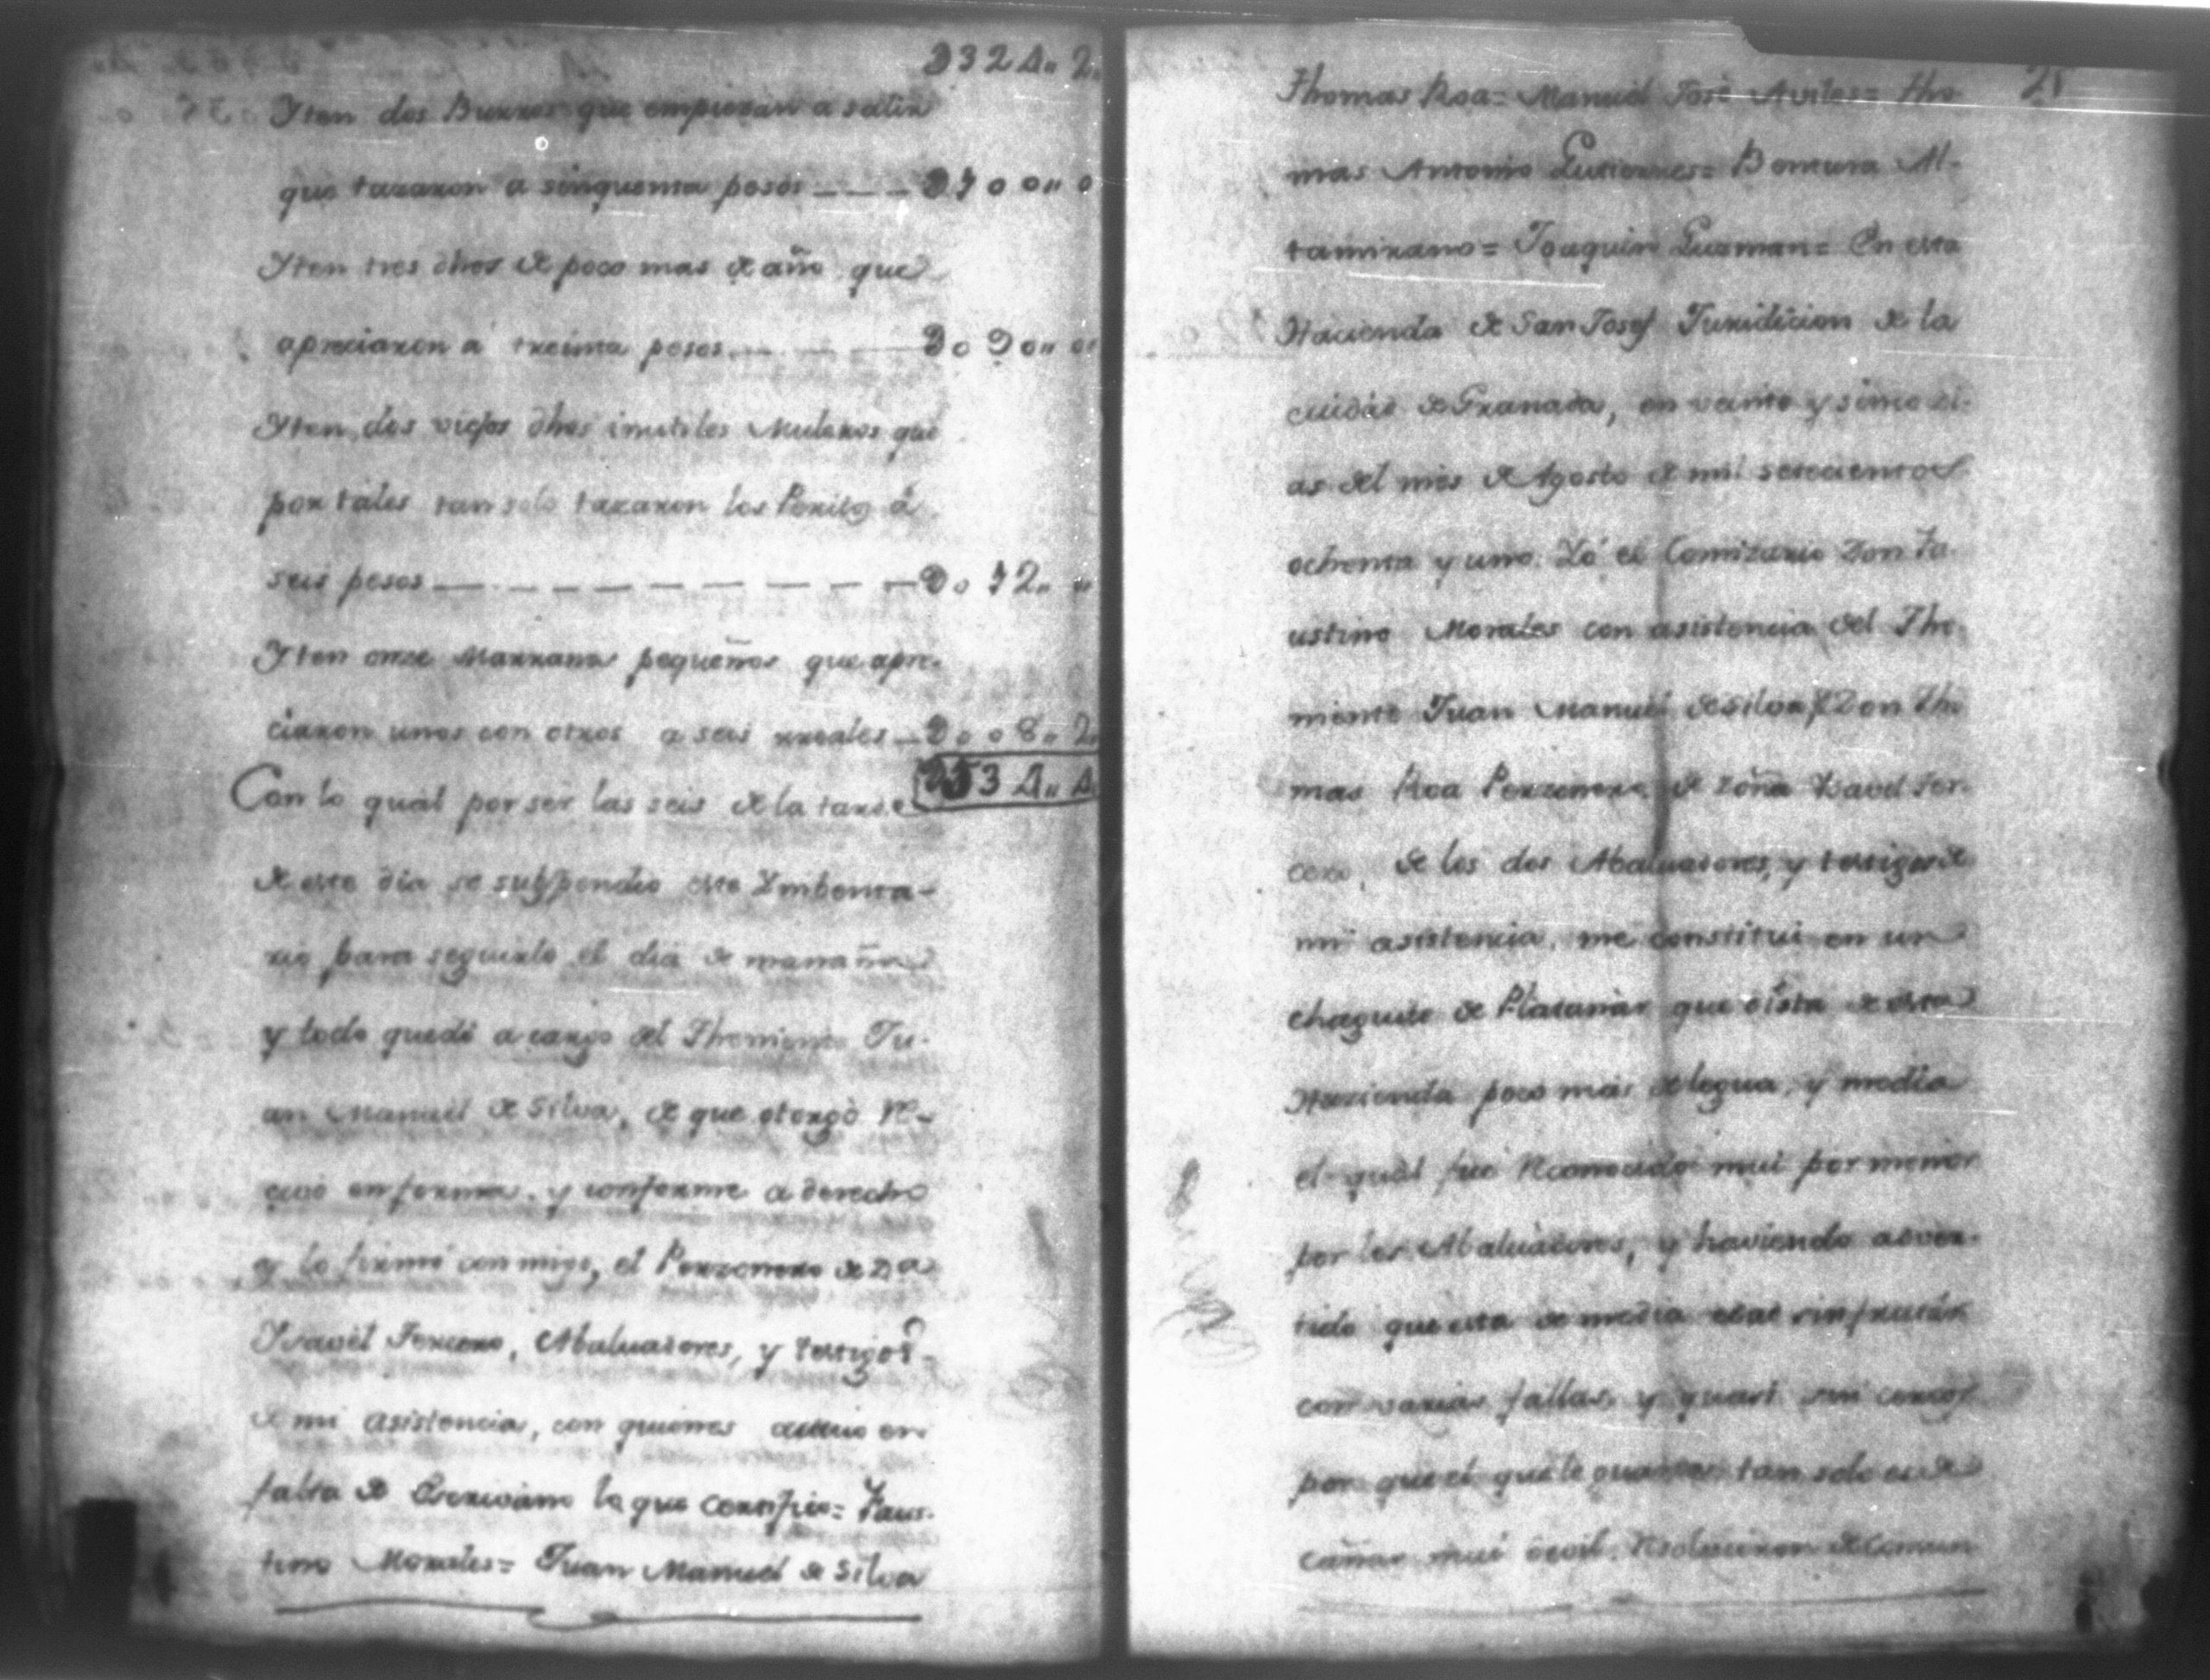 332 4,, 2.
Yten dos Burros que empiezan a salir
que tazaron a sinquenta pesos ___ 2100,, 0
Yten tres dhos de poco mas de año que
apreciaron á treinta pesos ___ 2090,, 0
Yten, dos viejos dhos inutiles Muleros que
por tales tan solo tazaron los Peritos á
seis pesos ___ 2012,, 0
Yten onze Marranos pequeños que apre-
ciaron unos con otros a seis rreales _ 2008,, 2.
Con lo qual por ser las seis de la tarde 2534,, 4
de este dia se suspendio este Ymbenta-
rio para seguirlo el dia de mañana
y todo quedó a cargo del Theniente Ju-
an Manuel de Silva, de que otorgó re-
civo en forma, y conforme a derecho
y lo firmó conmigo, el Perzonero de Da
Ysavel Tercero, Abaluadores, y testigos
de mi asistencia, con quienes actuo en
falta de Escrivano lo que certifico= Faus-
tino Morales= Juan Manuel de Silva
21
Thomas Roa= Manuel José Aviles= Tho-
mas Antonio Gutierres= Bentura Al-
tamirano= Joaquin Guzman= En esta
Hacienda de San Josef Juridicion de la
ciudad de Granada, en veinte y sinco di-
as del mes de Agosto de mil setecientos
ochenta y uno. Yó el Comizario Don Fa-
ustino Morales con asistencia del The-
niente Juan Manuel de Silva, Don Tho-
mas Roa Perzonero de Doña Ysavel Ter-
cero, de los dos Abaluadores, y testigos de
mi asistencia, me constitui en un
chaguite de Platanar que dista de esta
Hazienda poco mas de legua, y media
el qual fue reconocido mui por menor
por los Abaluadores, y haviendo adver-
tido que esta de media edad sin frutar
con varias fallas, y quasi sin cercos
por que el que le guarda tan solo es de
cañas mui devil. Resolvieron de comun